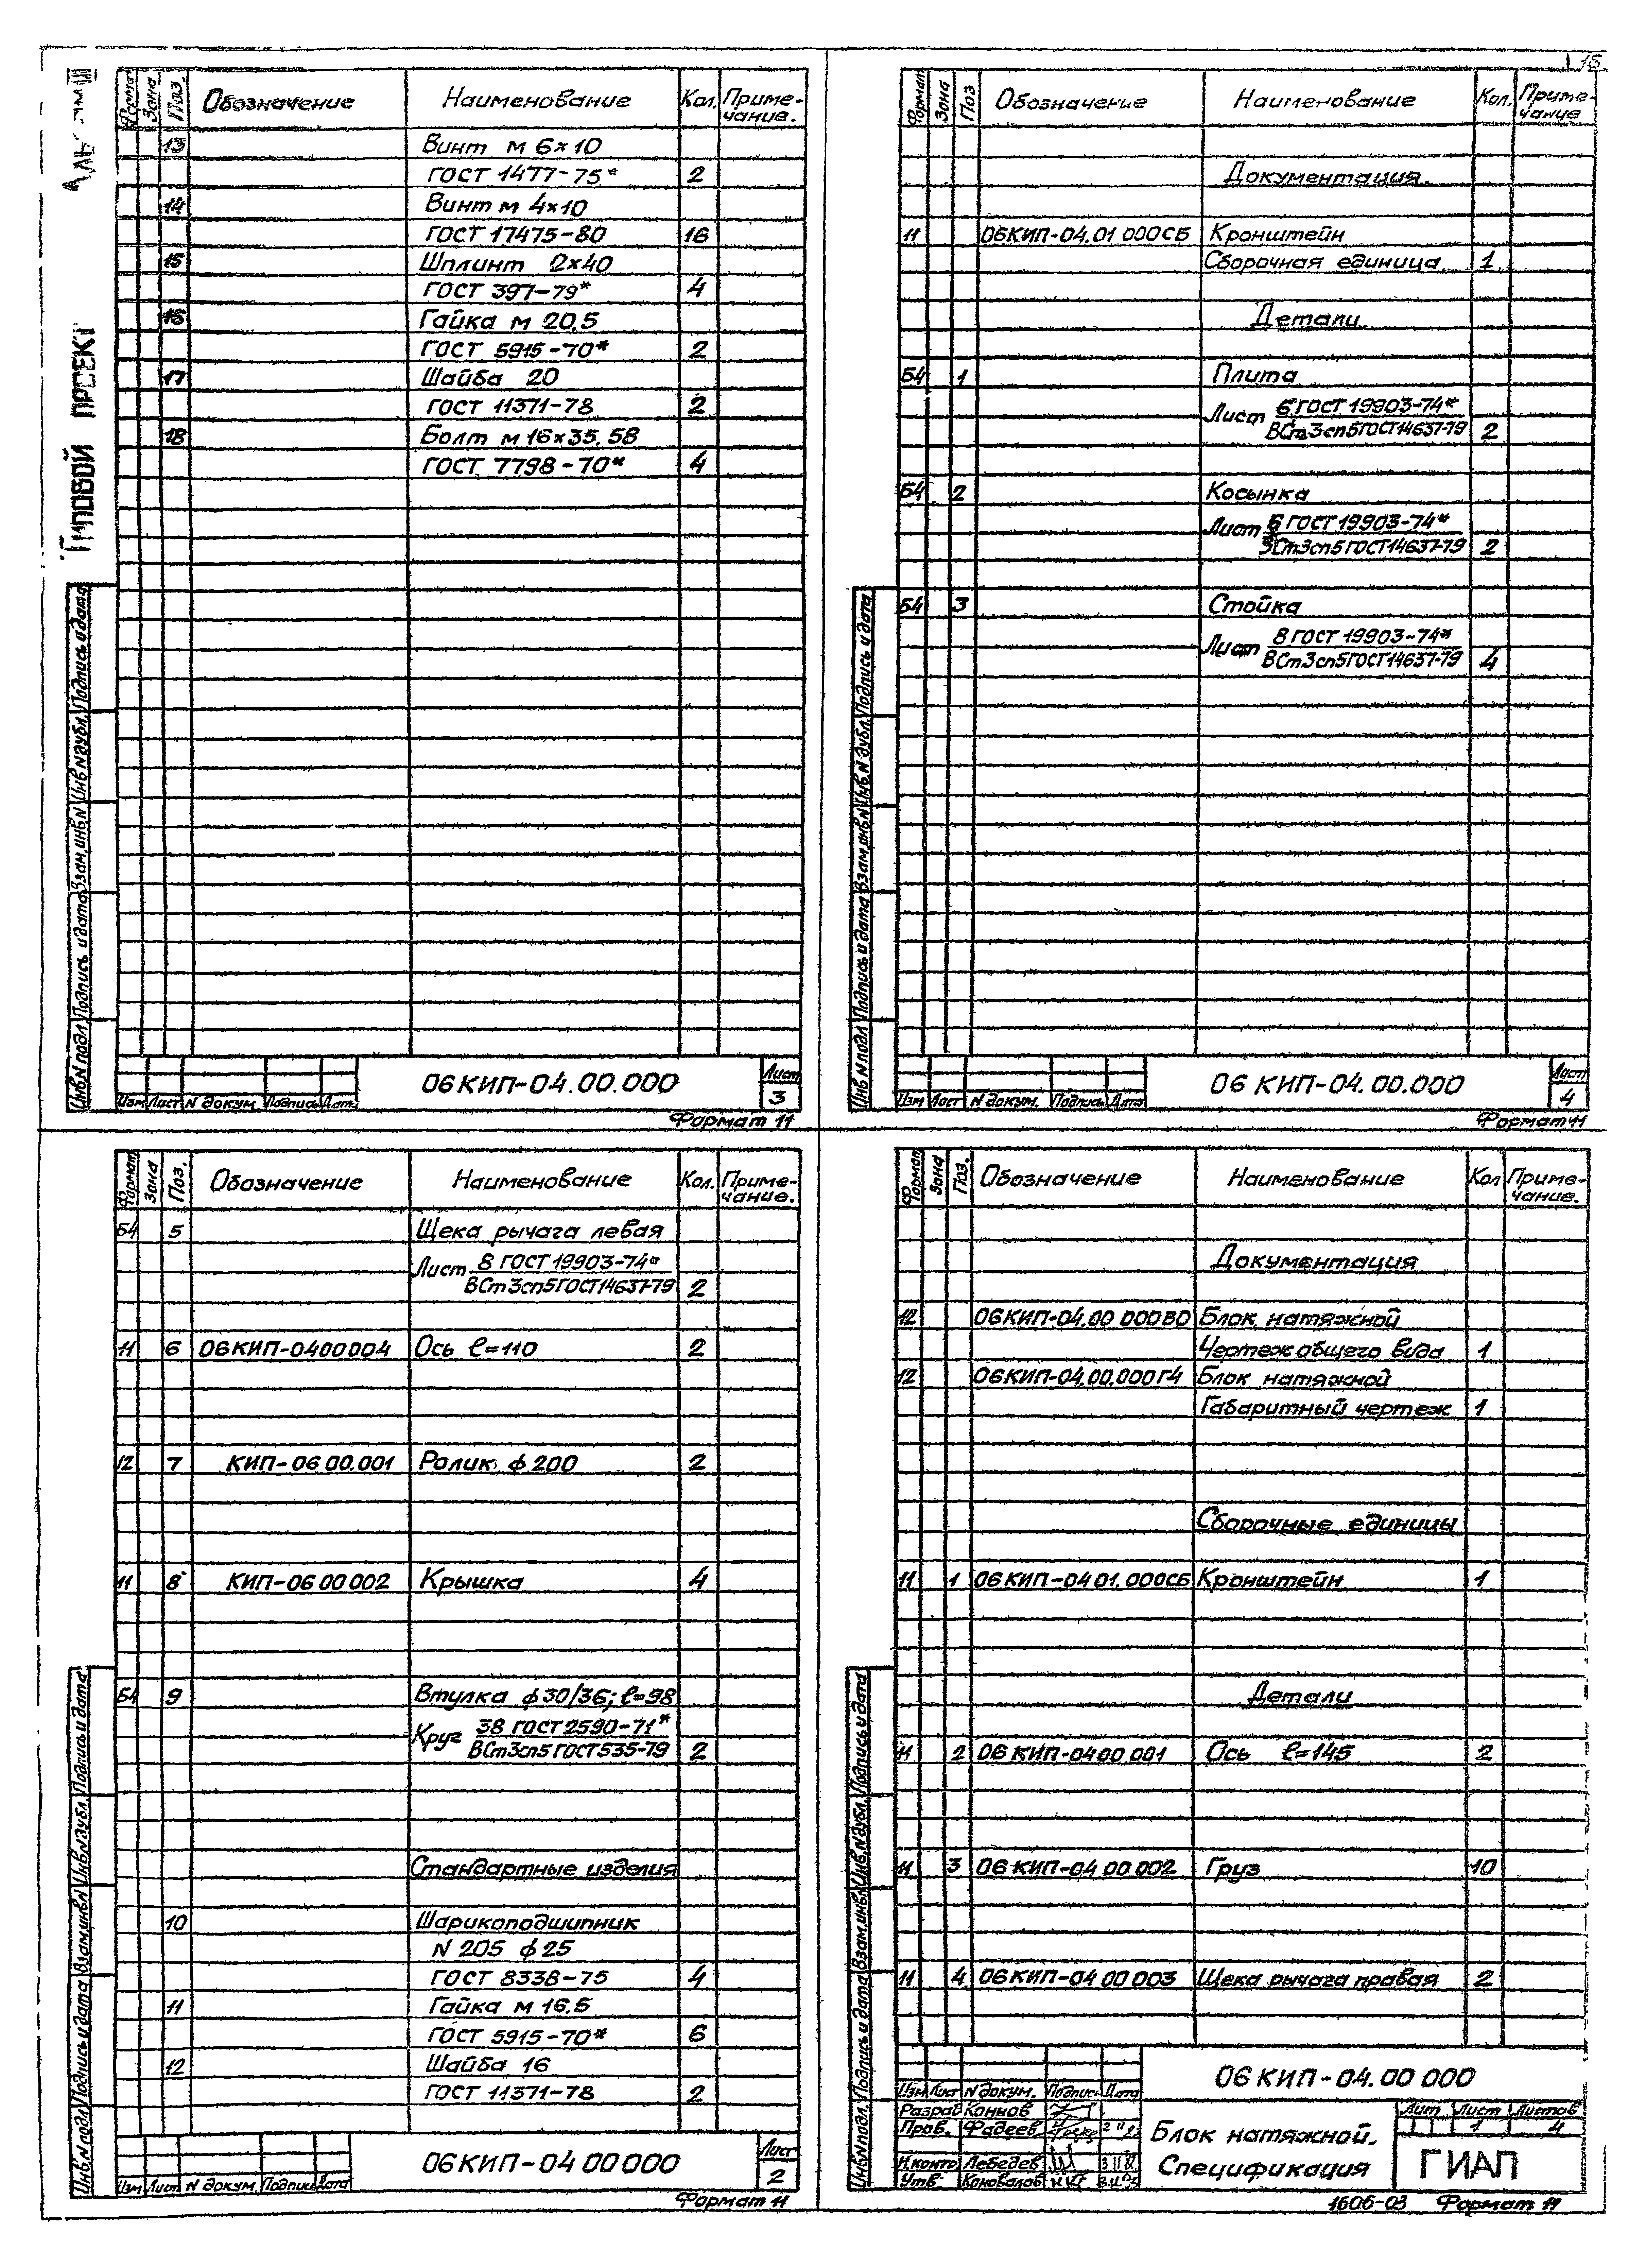 15
ТИПОВОЙ ПРОЕКТ
Формат Зона Поз. Обозначение Наименование Кол. Приме-
чание.
13 Винт м 6×10
ГОСТ 1477-75* 2
14 Винт м 4×10
ГОСТ 17475-80 16
15 Шплинт 2×40
ГОСТ 397-79* 4
16 Гайка м 20,5
ГОСТ 5915-70* 2
17 Шайба 20
ГОСТ 11371-78 2
18 Болт м 16×35.58
ГОСТ 7798-70* 4
Инв.N подл Подпись и дата Взам.инв.N Инв.N дубл. Подпись и дата
06КИП-04.00.000
Лист
3
Изм Лист N докум. Подпись Дата
Формат 11
Формат Зона Поз Обозначение Наименование Кол. Приме-
чание
Документация.
11 06КИП-04.01 000СБ Кронштейн
Сборочная единица 1
Детали
БЧ 1 Плита
Лист 6 ГОСТ 19903-74*
ВСт3сп5ГОСТ14637-79 2
БЧ 2 Косынка
Лист 6 ГОСТ 19903-74*
ВСт3сп5ГОСТ14637-79 2
БЧ 3 Стойка
Лист 8 ГОСТ 19903-74*
ВСт3сп5ГОСТ14637-79 4
Инв.N подл Подпись и дата Взам.инв.N Инв.N дубл. Подпись и дата
06 КИП-04.00.000
Лист
4
Изм Лист N докум. Подпись Дата
Формат 11
Формат Зона Поз. Обозначение Наименование Кол. Приме-
чание.
БЧ 5 Щека рычага левая
Лист 8 ГОСТ 19903-74*
ВСт3сп5ГОСТ14637-79 2
11 6 06КИП-0400004 Ось ℓ=110 2
12 7 КИП-06 00.001 Ролик ф 200 2
11 8 КИП-06 00 002 Крышка 4
БЧ 9 Втулка ф 30/36; ℓ=98
Круг 38 ГОСТ 2590-71*
ВСт3сп5 ГОСТ535-79 2
Стандартные изделия
10 Шарикоподшипник
N 205 ф 25
ГОСТ 8338-75 4
11 Гайка м 16.5
ГОСТ 5915-70* 6
12 Шайба 16
ГОСТ 11371-78 2
Инв.N подл Подпись и дата Взам.инв.N Инв.N дубл. Подпись и дата
06КИП-04 00 000
Лист
2
Изм Лист N докум. Подпись Дата
Формат 11
Формат Зона Поз. Обозначение Наименование Кол Приме-
чание.
Документация
12 06КИП-04.00 000ВО Блок натяжной
Чертеж общего вида 1
12 06КИП-04.00.000ГЧ Блок натяжной
Габаритный чертеж 1
Сборочные единицы
11 1 06КИП-04 01.000СБ Кронштейн 1
Детали
11 2 06 КИП-04 00.001 Ось ℓ=145 2
11 3 06 КИП-04 00 002 Груз 10
11 4 06 КИП-04 00 003 Щека рычага правая 2
Инв.N подл. Подпись и дата Взам.инв.N Инв.N дубл. Подпись и дата
06 КИП-04.00 000
Изм Лист N докум. Подпись Дата
Разраб Коннов
Пров. Фадеев
Н.контр Лебедев
Утв. Коновалов
Блок натяжной.
Спецификация
Лит Лист Листов
1 4
ГИАП
1606-03 Формат 11